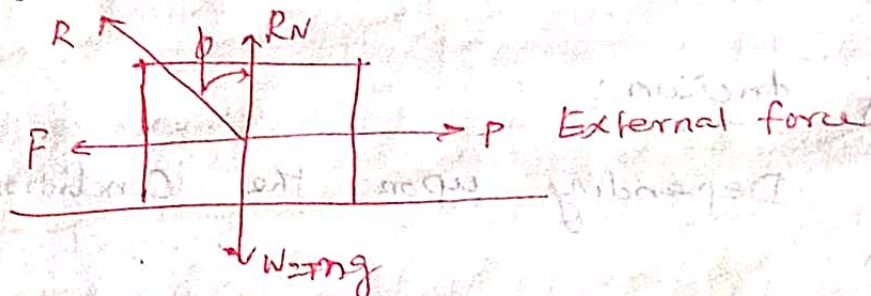 R
RN
φ
F
P External force
W=mg